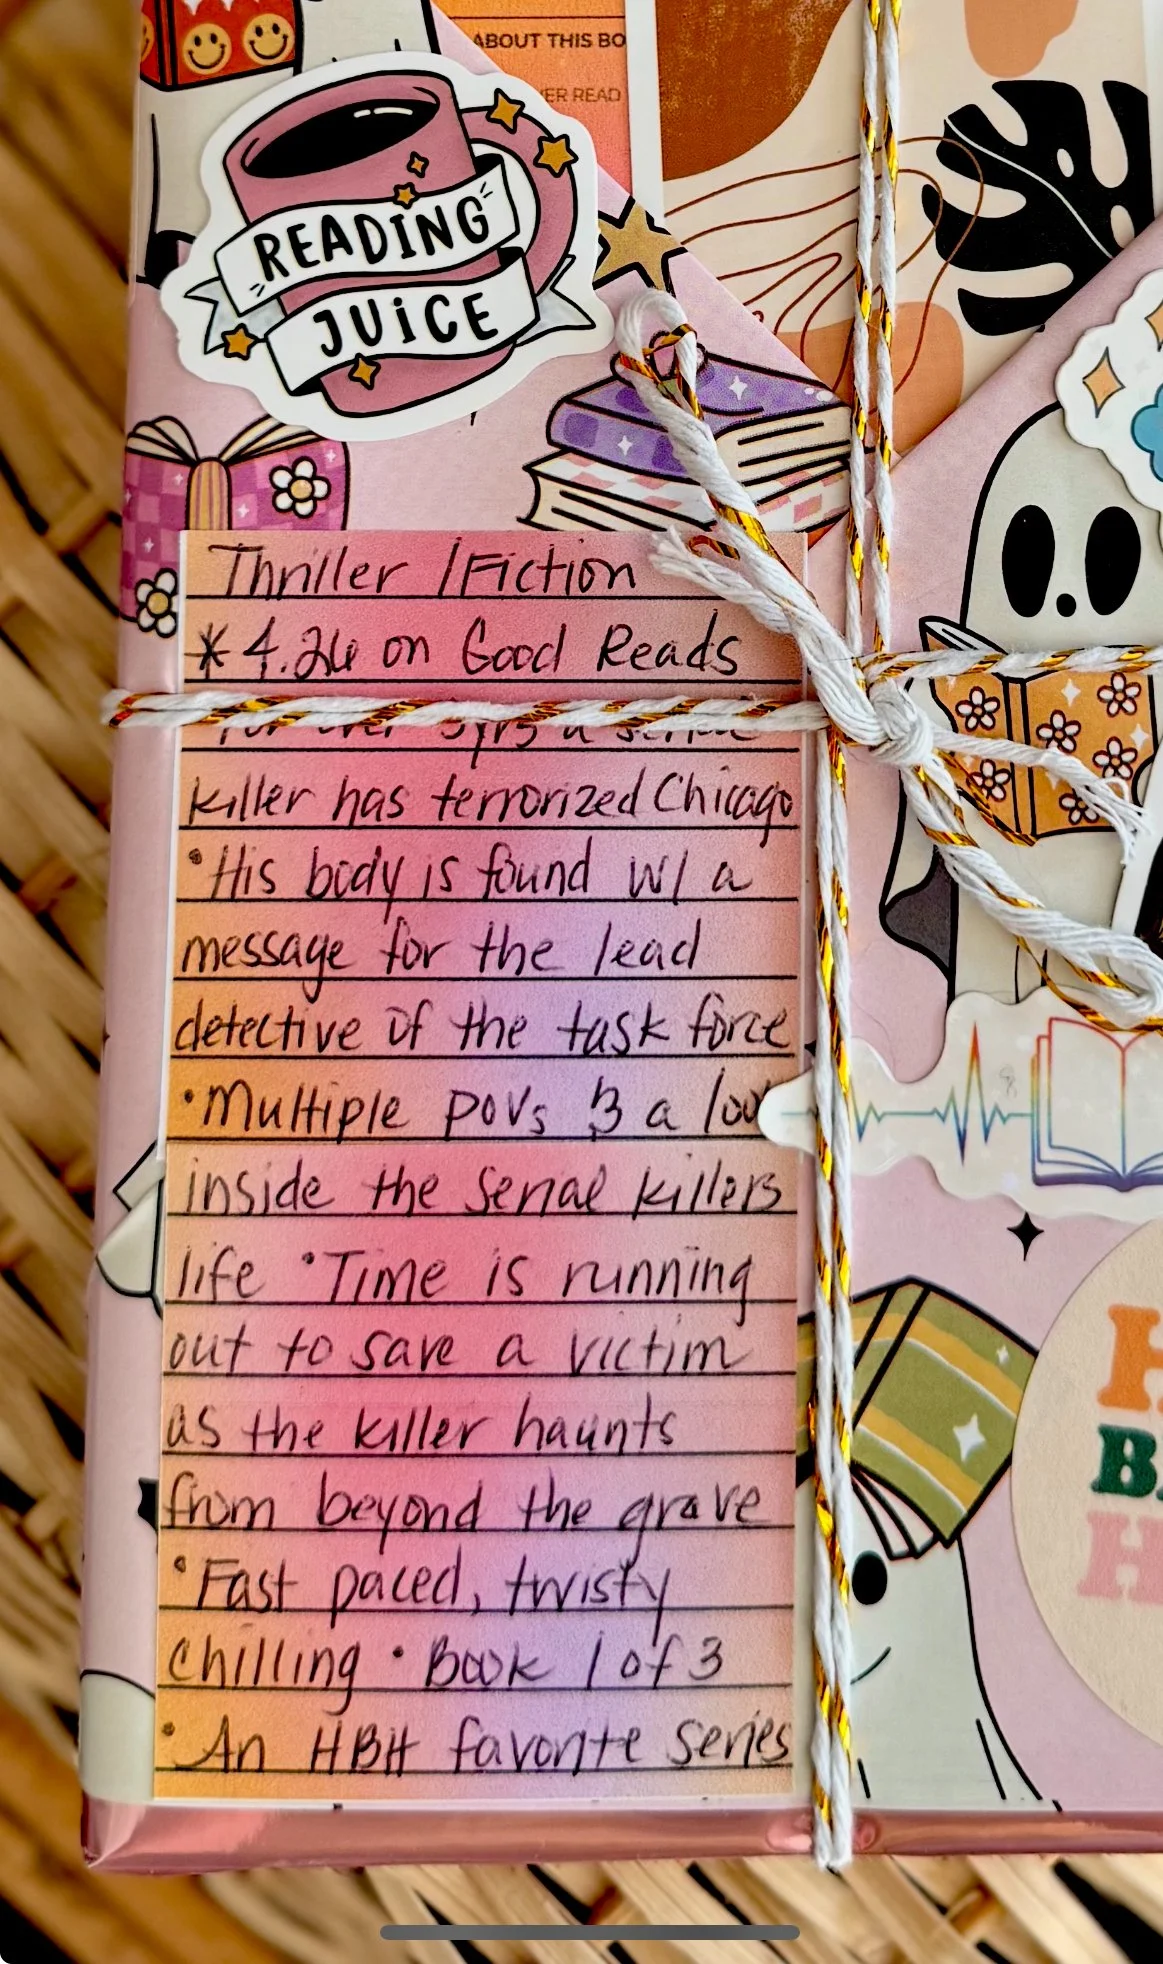 ABOUT THIS BO
ER READ
READING
JUICE
Thriller / Fiction
* 4.26 on Good Reads
for over 5yrs a serial
killer has terrorized Chicago
• His body is found w/ a
message for the lead
detective of the task force
• Multiple POVs & a loo
inside the serial killers
life • Time is running
out to save a victim
as the killer haunts
from beyond the grave
• Fast paced, twisty
chilling • Book 1 of 3
• An HBH favorite series
H
BA
H